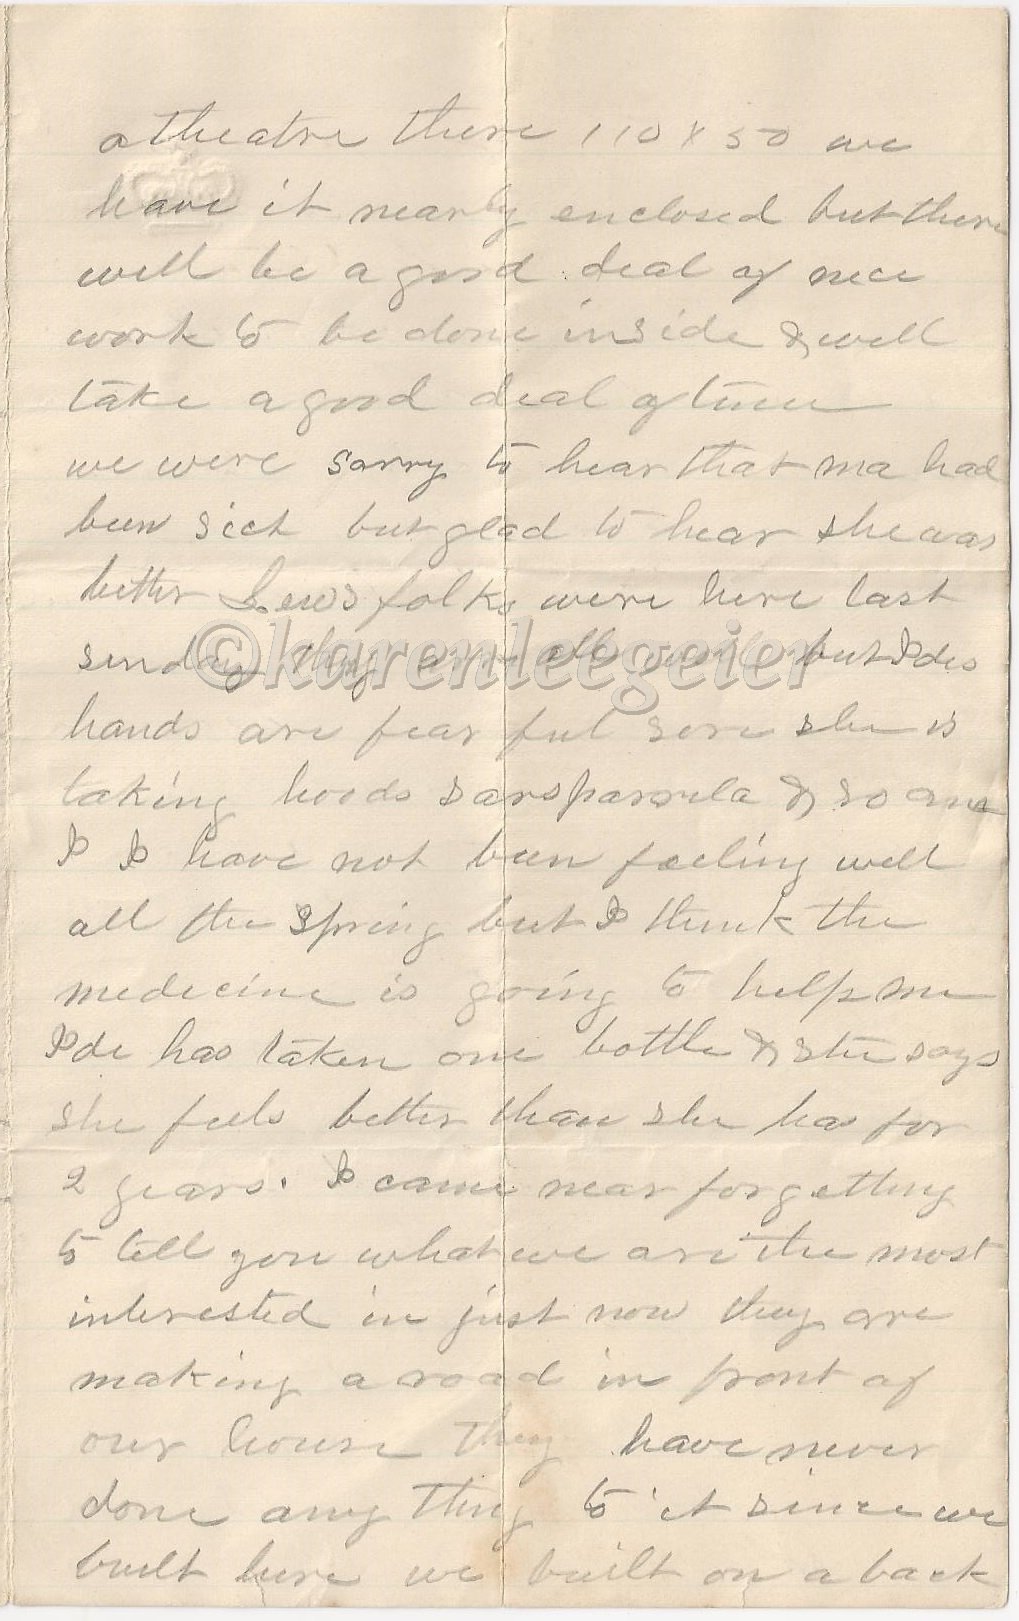 a theatre there 110 x 50 we
have it nearly enclosed but there
will be a good deal of nice
work to be done inside & will
take a good deal of time
we were sorry to hear that ma had
been sick but glad to hear she was
better Lews folks were here last
sunday they are all well but Ides
©karenleegeier
hands are fear ful sore she is
taking hoods sarsparila & so am
I I have not been feeling well
all the spring but I think the
medecine is going to help me
Ide has taken one bottle & she says
she feels better than she has for
2 years. I came near forgetting
to tell you what we are the most
interested in just now they are
making a road in front of
our house they have never
done any thing to it since we
built here we built on a back